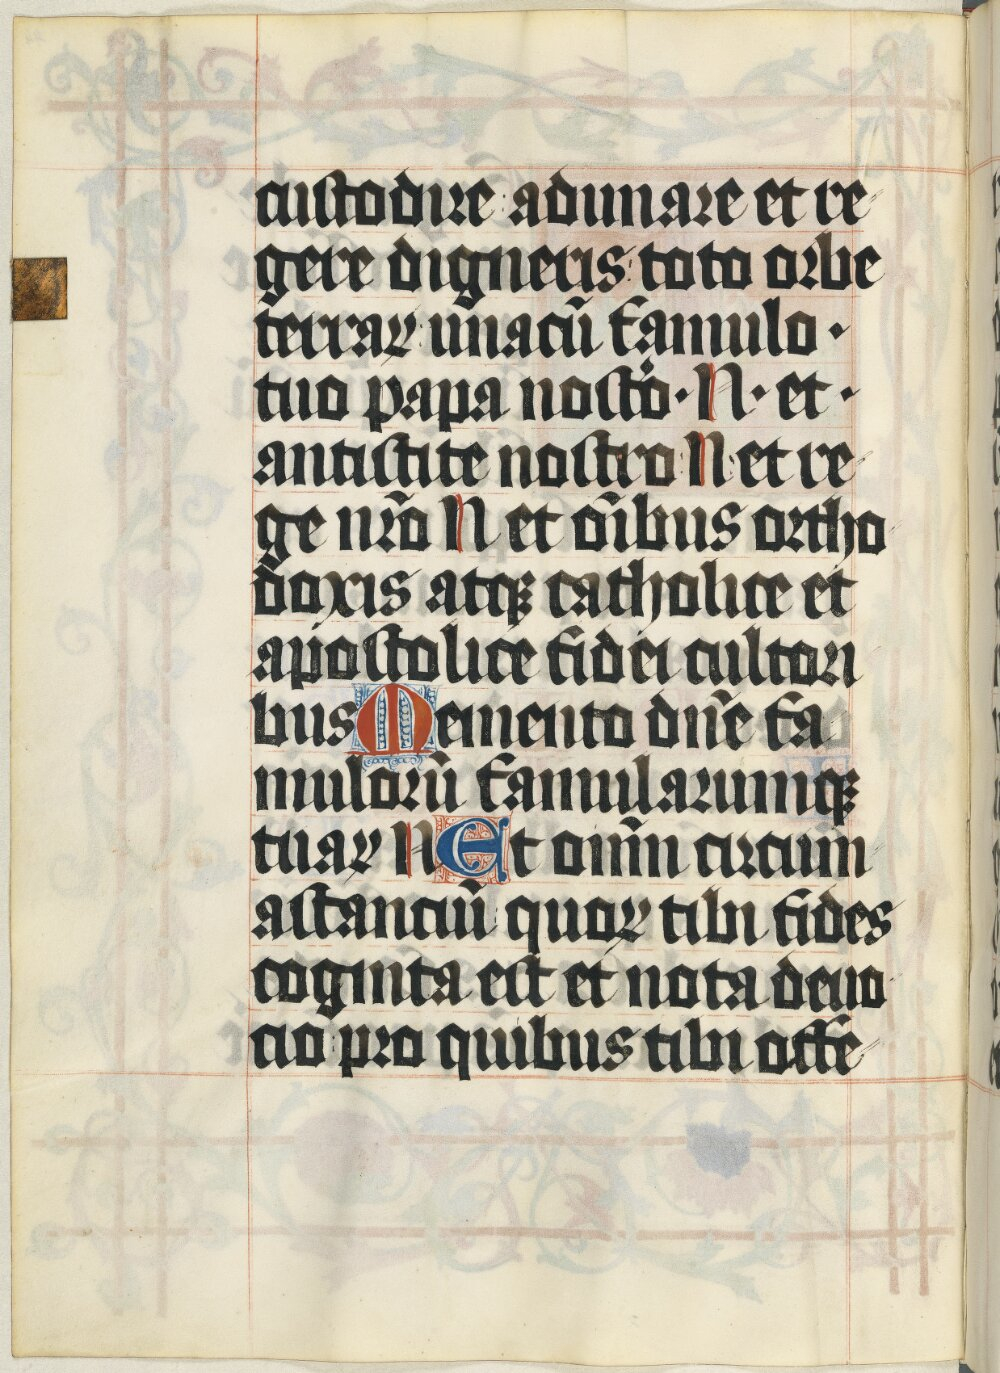 custodire adunare et re
gere digneris toto orbe
terraꝝ unacū famulo ·
tuo papa nostͦo · N · et ·
antistite nostro N et re
ge nr̄o N et oīb​us ortho
doxis atqꝫ catholice et
apostolice fidei cultori
bus Memento dn̄e fa
mulorū famularumqꝫ
tuaꝝ N Et om̄n circum
astanciū quoꝝ tibi fides
cognita est et nota deuo
cio pro quibus tibi offe